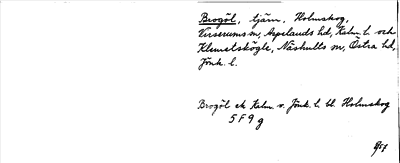 Brogöl, tjärn, Holmskog,
Virserums sn, Aspelands hd, Kalm. l. och
Klemetskögle, Näshults sn, Östra hd,
Jönk. l.
Brogöl ek Kalm. o. Jönk. l. bl. Holmskog
5 F 9 g